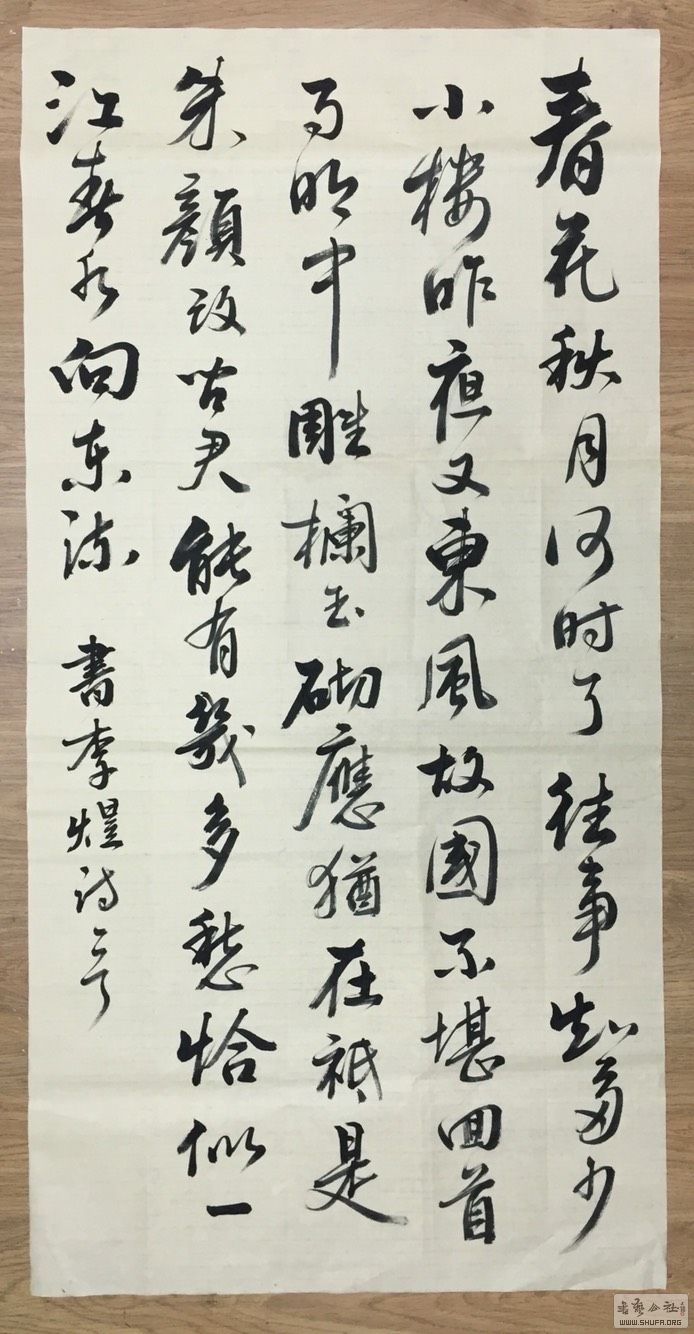 春花秋月何时了往事知多少
小楼昨夜又東風故國不堪回首
月明中雕欄玉砌應猶在祗是
朱顔改问君能有幾多愁恰似一
江春水向东流 書李煜诗一首
書藝公社
WWW.SHUFA.ORG